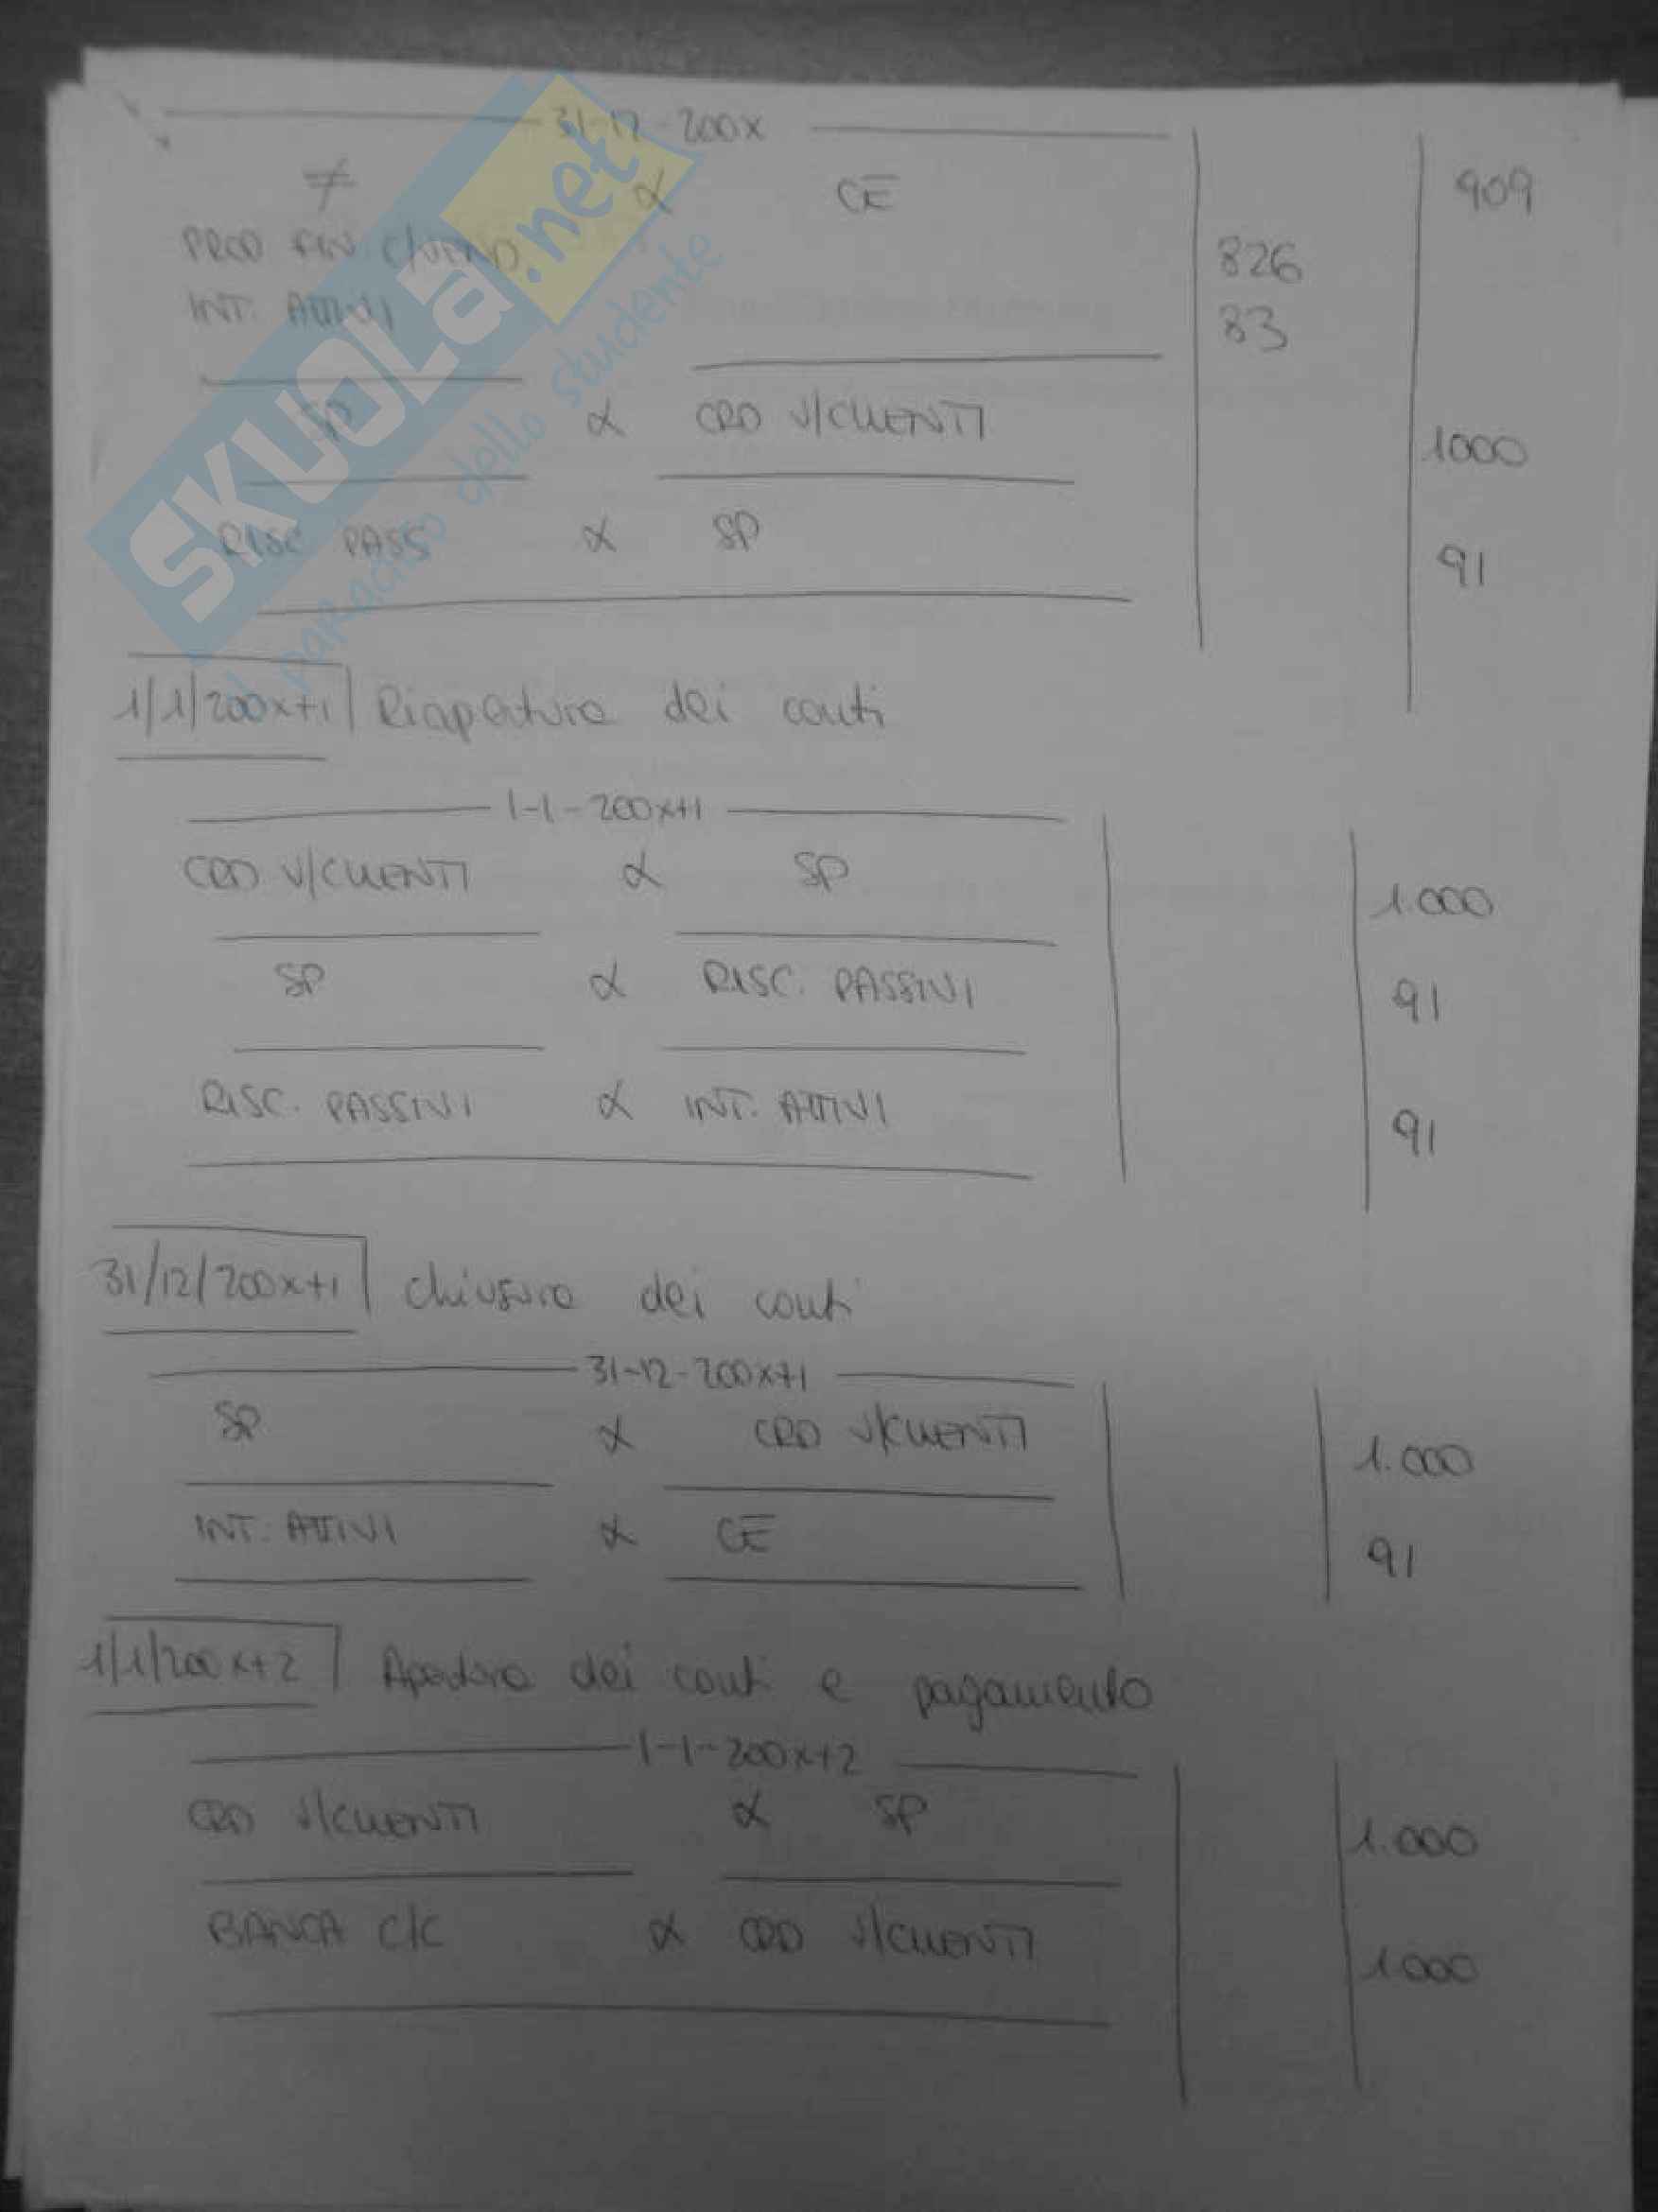 31-12-200x
≠ α CE 909
PROD FIN. C/VEND. 826
INT. ATTIVI 83
SP α CRD V/CLIENTI 1000
RISC. PASS α SP 91
1/1/200x+1 Riapertura dei conti
1-1-200x+1
CRD V/CLIENTI α SP 1.000
SP α RISC. PASSIVI 91
RISC. PASSIVI α INT. ATTIVI 91
31/12/200x+1 chiusura dei conti
31-12-200x+1
SP α CRD V/CLIENTI 1.000
INT. ATTIVI α CE 91
1/1/200x+2 Apertura dei conti e pagamento
1-1-200x+2
CRD V/CLIENTI α SP 1.000
BANCA C/C α CRD V/CLIENTI 1.000
SKUOLA.net
il paradiso dello studente